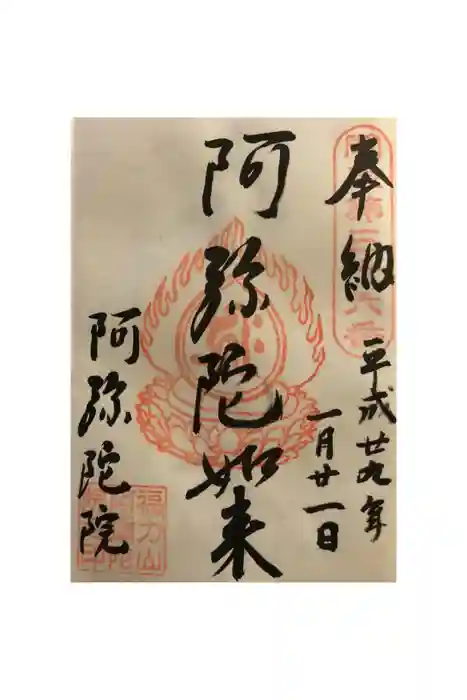 奉納
平成廿九年
一月廿一日
阿弥陀如来
阿弥陀院
福力山